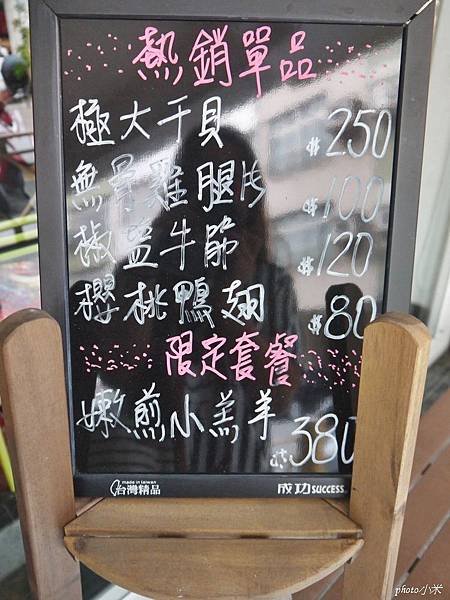 熱銷單品
極大干貝 $250
無骨雞腿排 $100
椒鹽牛筋 $120
櫻桃鴨翅 $80
限定套餐
嫩煎小羔羊 $380
made in taiwan
台灣精品
成功 SUCCESS
photo/小米